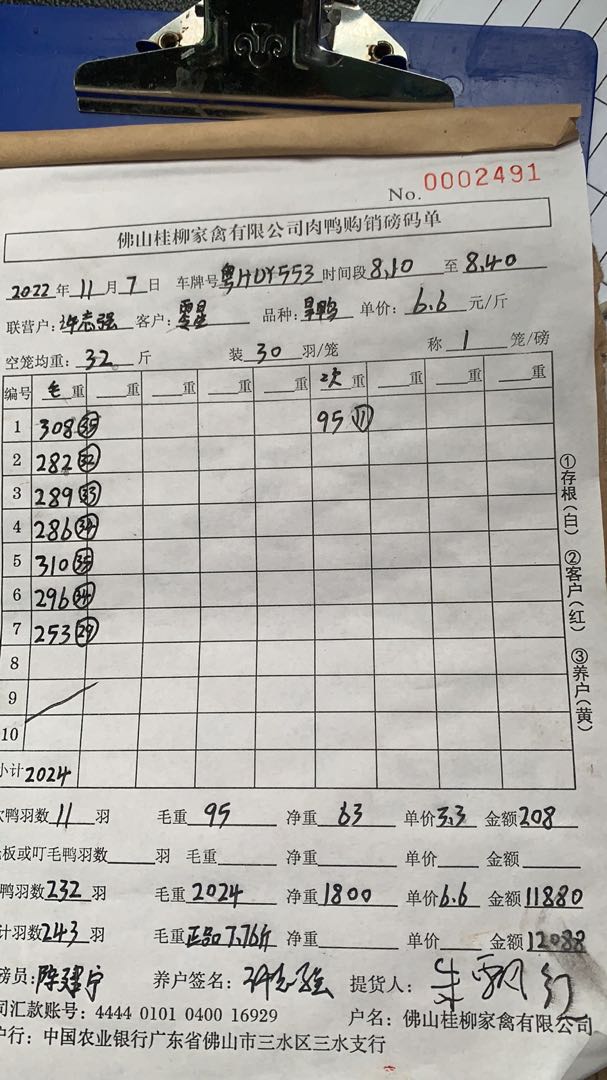 No. 0002491
佛山桂柳家禽有限公司肉鸭购销磅码单
2022年 11月 7日 车牌号粤HUY553 时间段8.10 至 8.40
联营户:许志强 客户:零星 品种:旱鸭 单价:6.6 元/斤
空笼均重:32斤 装 30 羽/笼 称 1 笼/磅
编号 毛 重 重 重 重 重 次 重 重 重 重
1 308 35 95 11
2 282 32
3 289 33
4 286 34
5 310 35
6 296 34
7 253 29
8
9
10
小计 2024
①存根(白) ②客户(红) ③养户(黄)
鸭羽数 11 羽 毛重 95 净重 63 单价3.3 金额208
板或叮毛鸭羽数 羽 毛重 净重 单价 金额
鸭羽数232羽 毛重2024 净重1800 单价6.6 金额11880
计羽数243羽 毛重正品7.76斤 净重 单价 金额12088
磅员:陈建宁 养户签名:许志强 提货人:
司汇款账号: 4444 0101 0400 16929 户名: 佛山桂柳家禽有限公司
户行: 中国农业银行广东省佛山市三水区三水支行